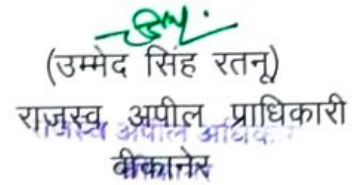 (उम्मेद सिंह रतनू)
राजस्व अपील प्राधिकारी
राजस्व अपील अधिक
बीकानेर